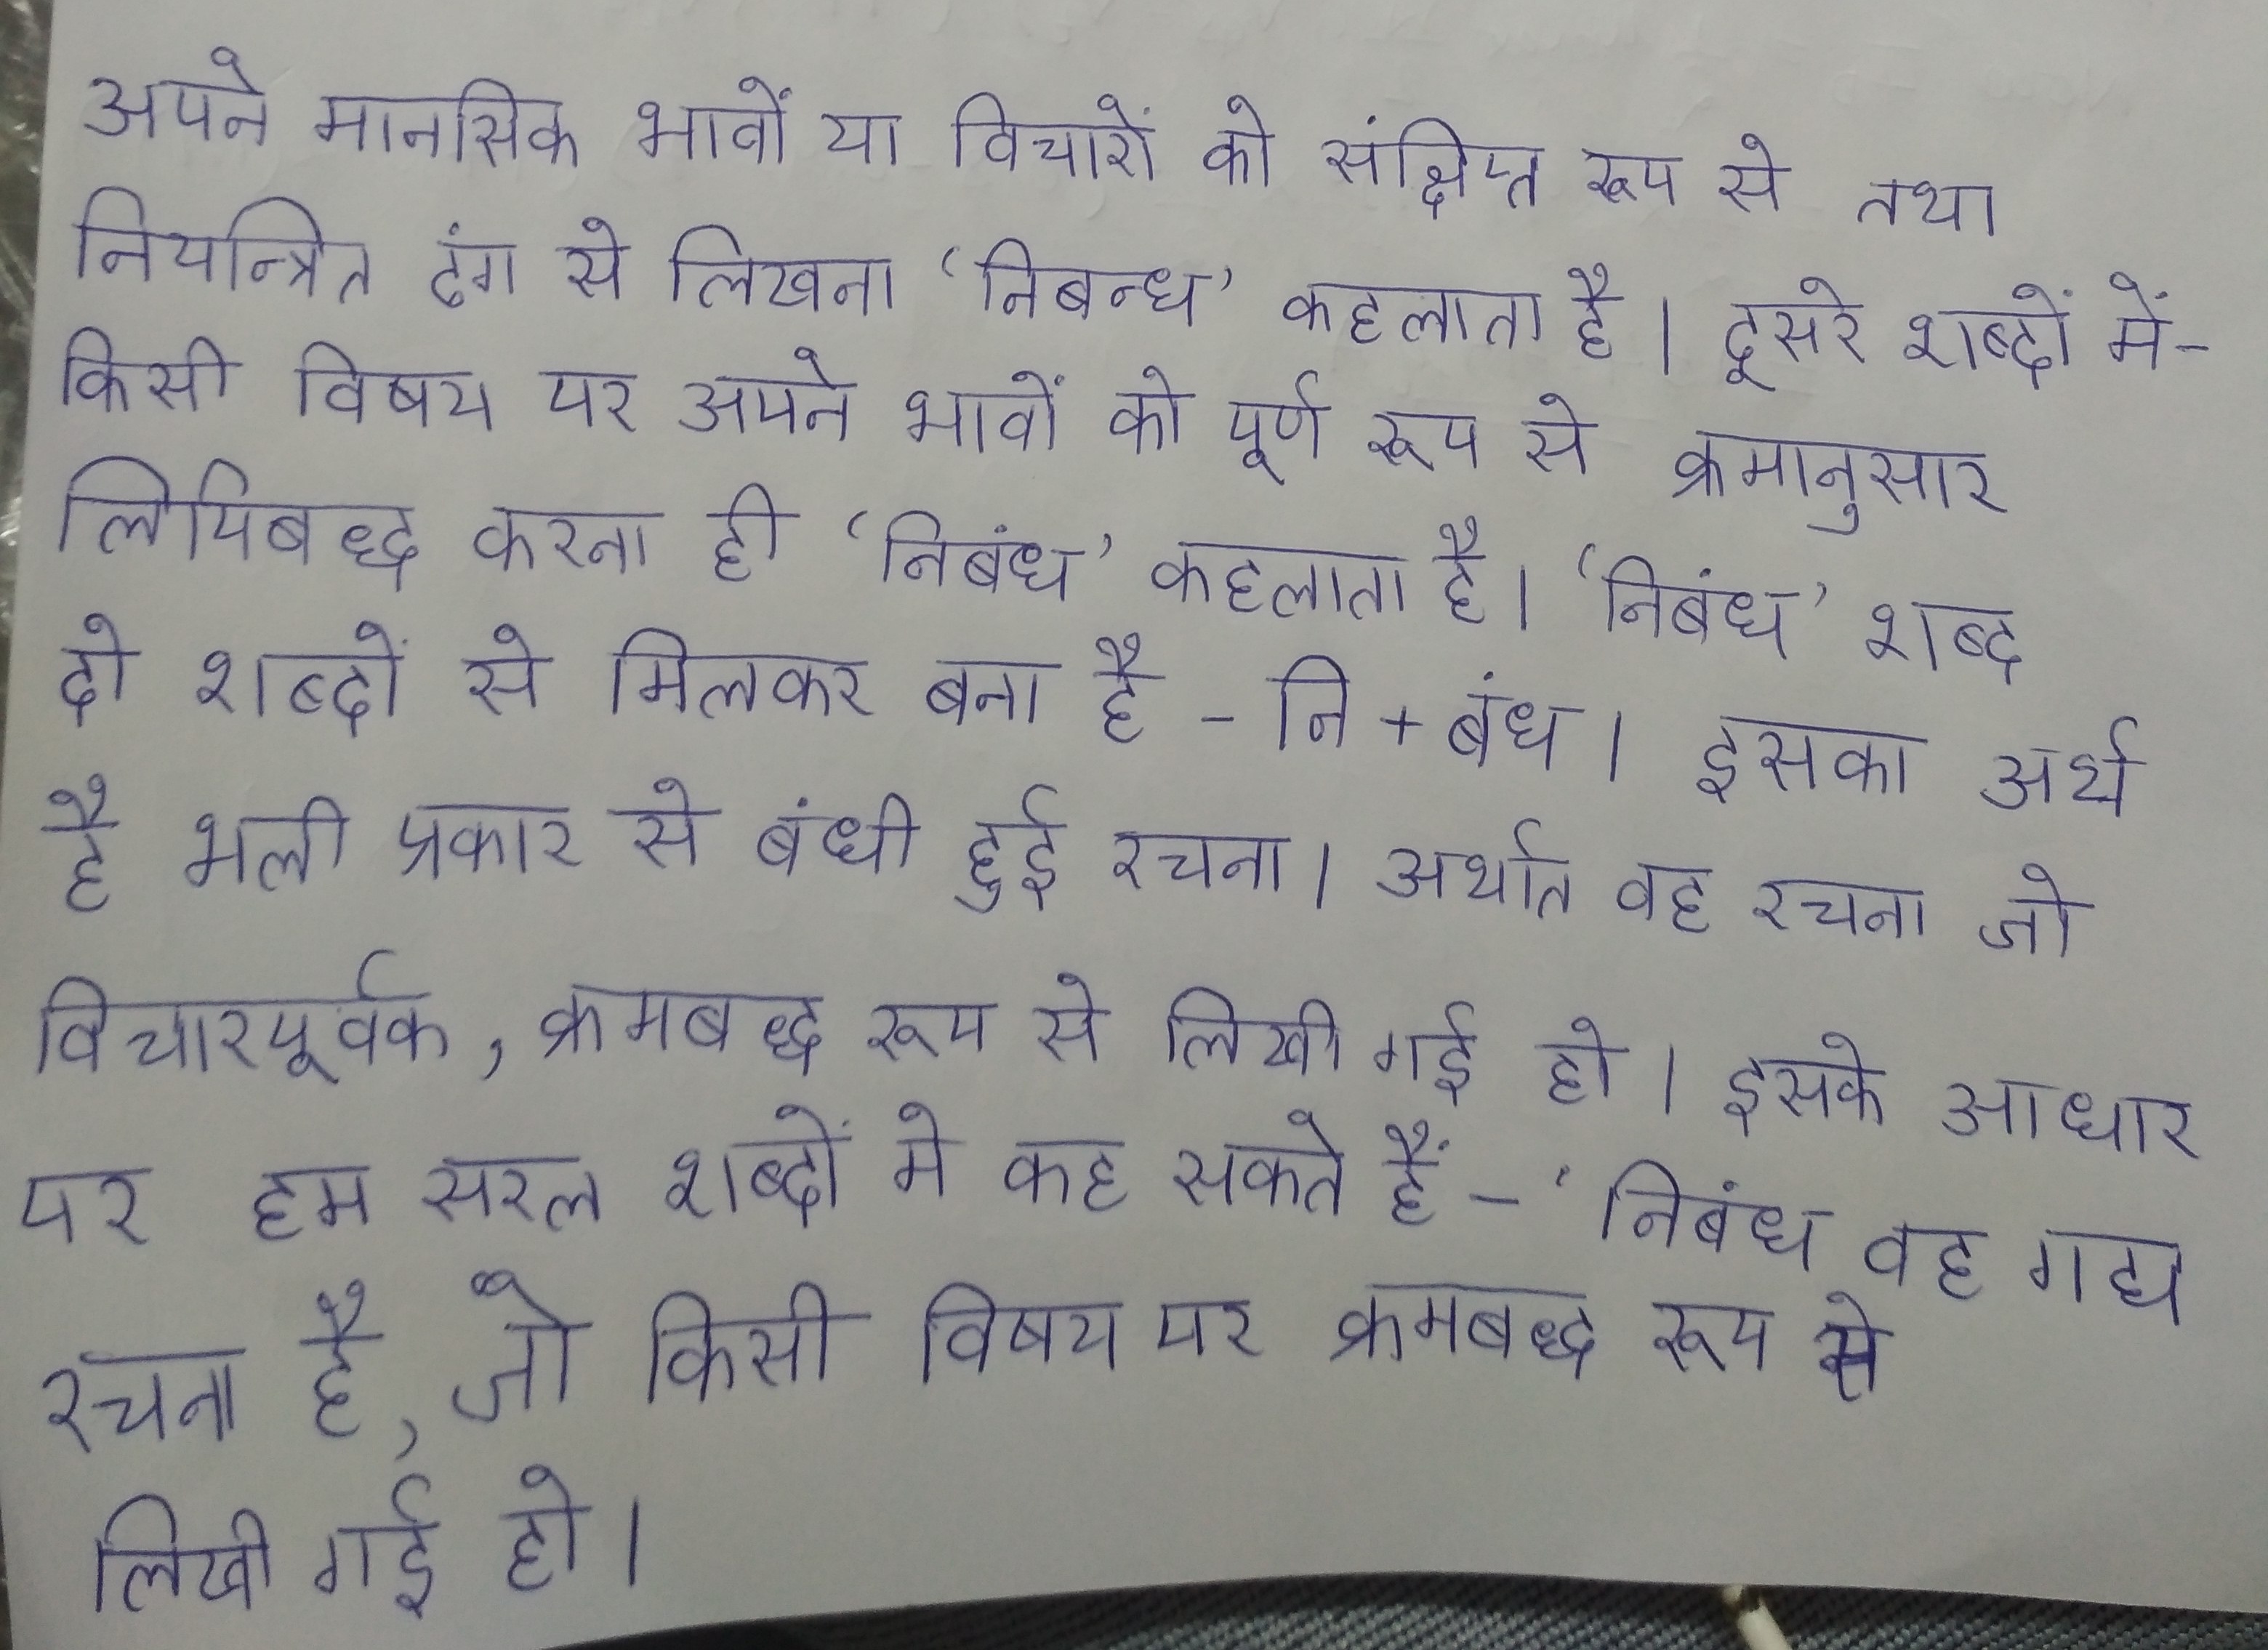 अपने मानसिक भावों या विचारों को संक्षिप्त रूप से तथा
नियन्त्रित ढंग से लिखना ‘निबन्ध’ कहलाता है। दूसरे शब्दों में-
किसी विषय पर अपने भावों को पूर्ण रूप से क्रमानुसार
लिपिबद्ध करना ही ‘निबंध’ कहलाता है। ‘निबंध’ शब्द
दो शब्दों से मिलकर बना है - नि + बंध। इसका अर्थ
है भली प्रकार से बंधी हुई रचना। अर्थात वह रचना जो
विचारपूर्वक, क्रमबद्ध रूप से लिखी गई हो। इसके आधार
पर हम सरल शब्दों मे कह सकते हैं - ‘निबंध वह गद्य
रचना है, जो किसी विषय पर क्रमबद्ध रूप से
लिखी गई हो।